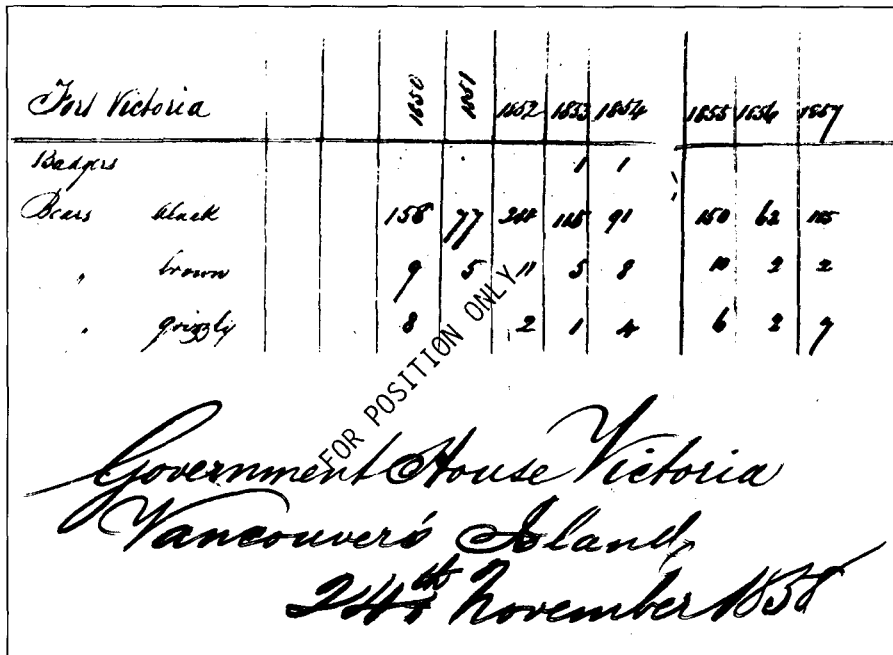 Fort Victoria 1850 1851 1852 1853 1854 1855 1856 1857
Badgers 1 1
Bears black 158 77 91 150 62
" brown 9 5 11 5 8 10 2 2
" grizzly 8 2 1 4 6 2 7
FOR POSITION ONLY
Government House Victoria
Vancouver's Island,
24th November 1858